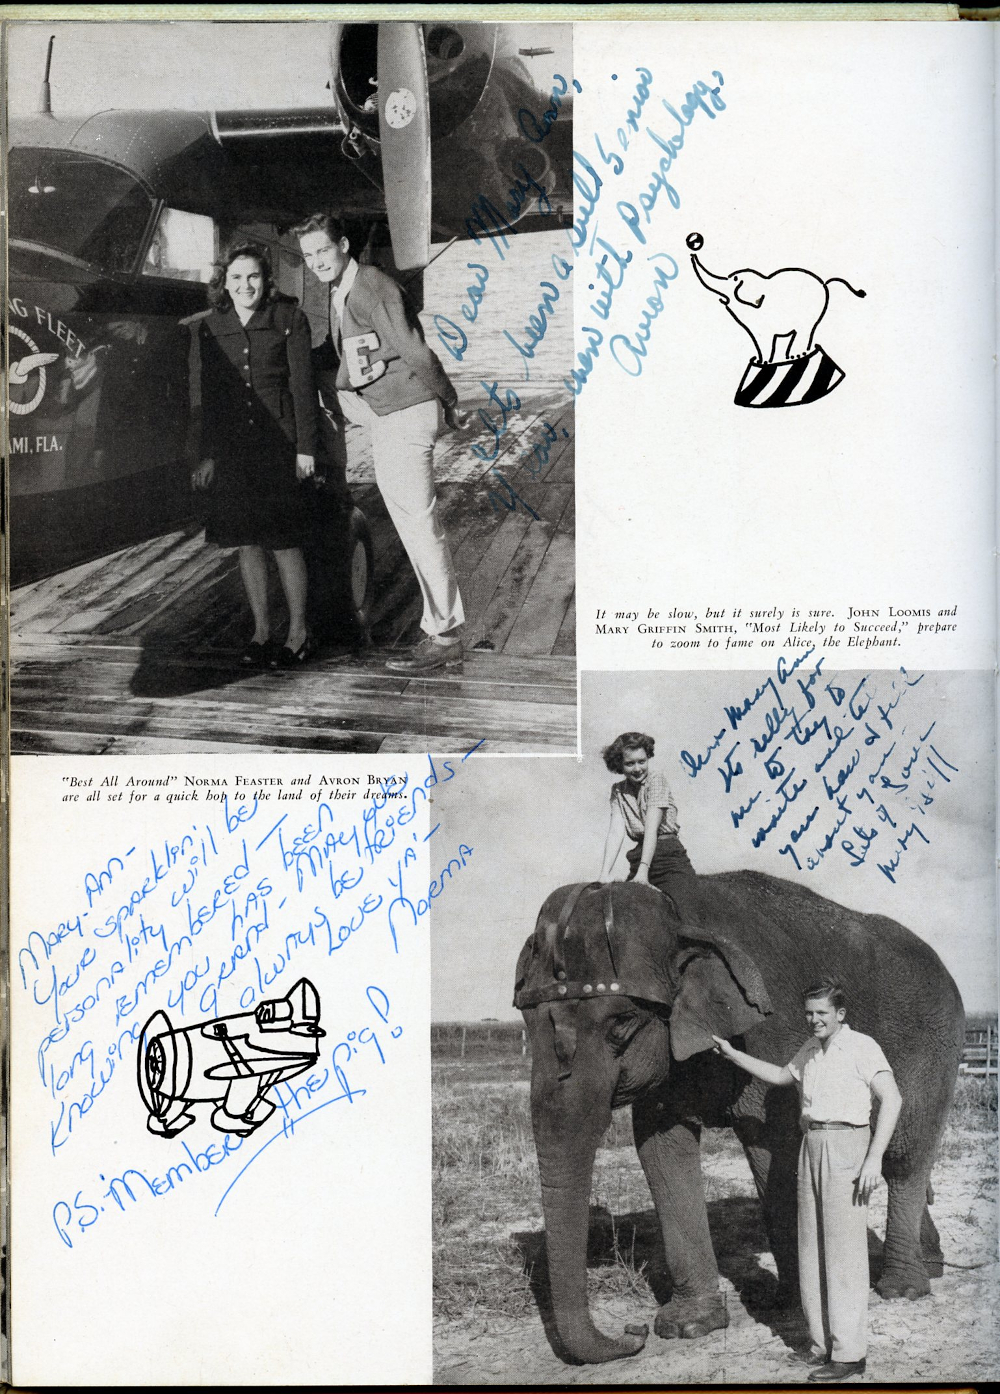 NG FLEET
AMI, FLA.
E
Dear Mary Ann,
It's been a swell Senior
Year, even with Psychology.
Avron
It may be slow, but it surely is sure. JOHN LOOMIS and
MARY GRIFFIN SMITH, "Most Likely to Succeed," prepare
to zoom to fame on Alice, the Elephant.
"Best All Around" NORMA FEASTER and AVRON BRYAN
are all set for a quick hop to the land of their dreams.
Mary Ann
to really for
me to try to
write and tell
you how I feel
about you
Lots of Love
Mary
MARY-ANN-
YOUR SPARKLIN'
PERSONALITY WILL BE
LONG REMEMBERED —
KNOWING YOU HAS BEEN
GRAND - MAY WE
ALWAYS BE FRIENDS -
LOVE YA' -
NORMA
P.S. 'MEMBER THE PIG!